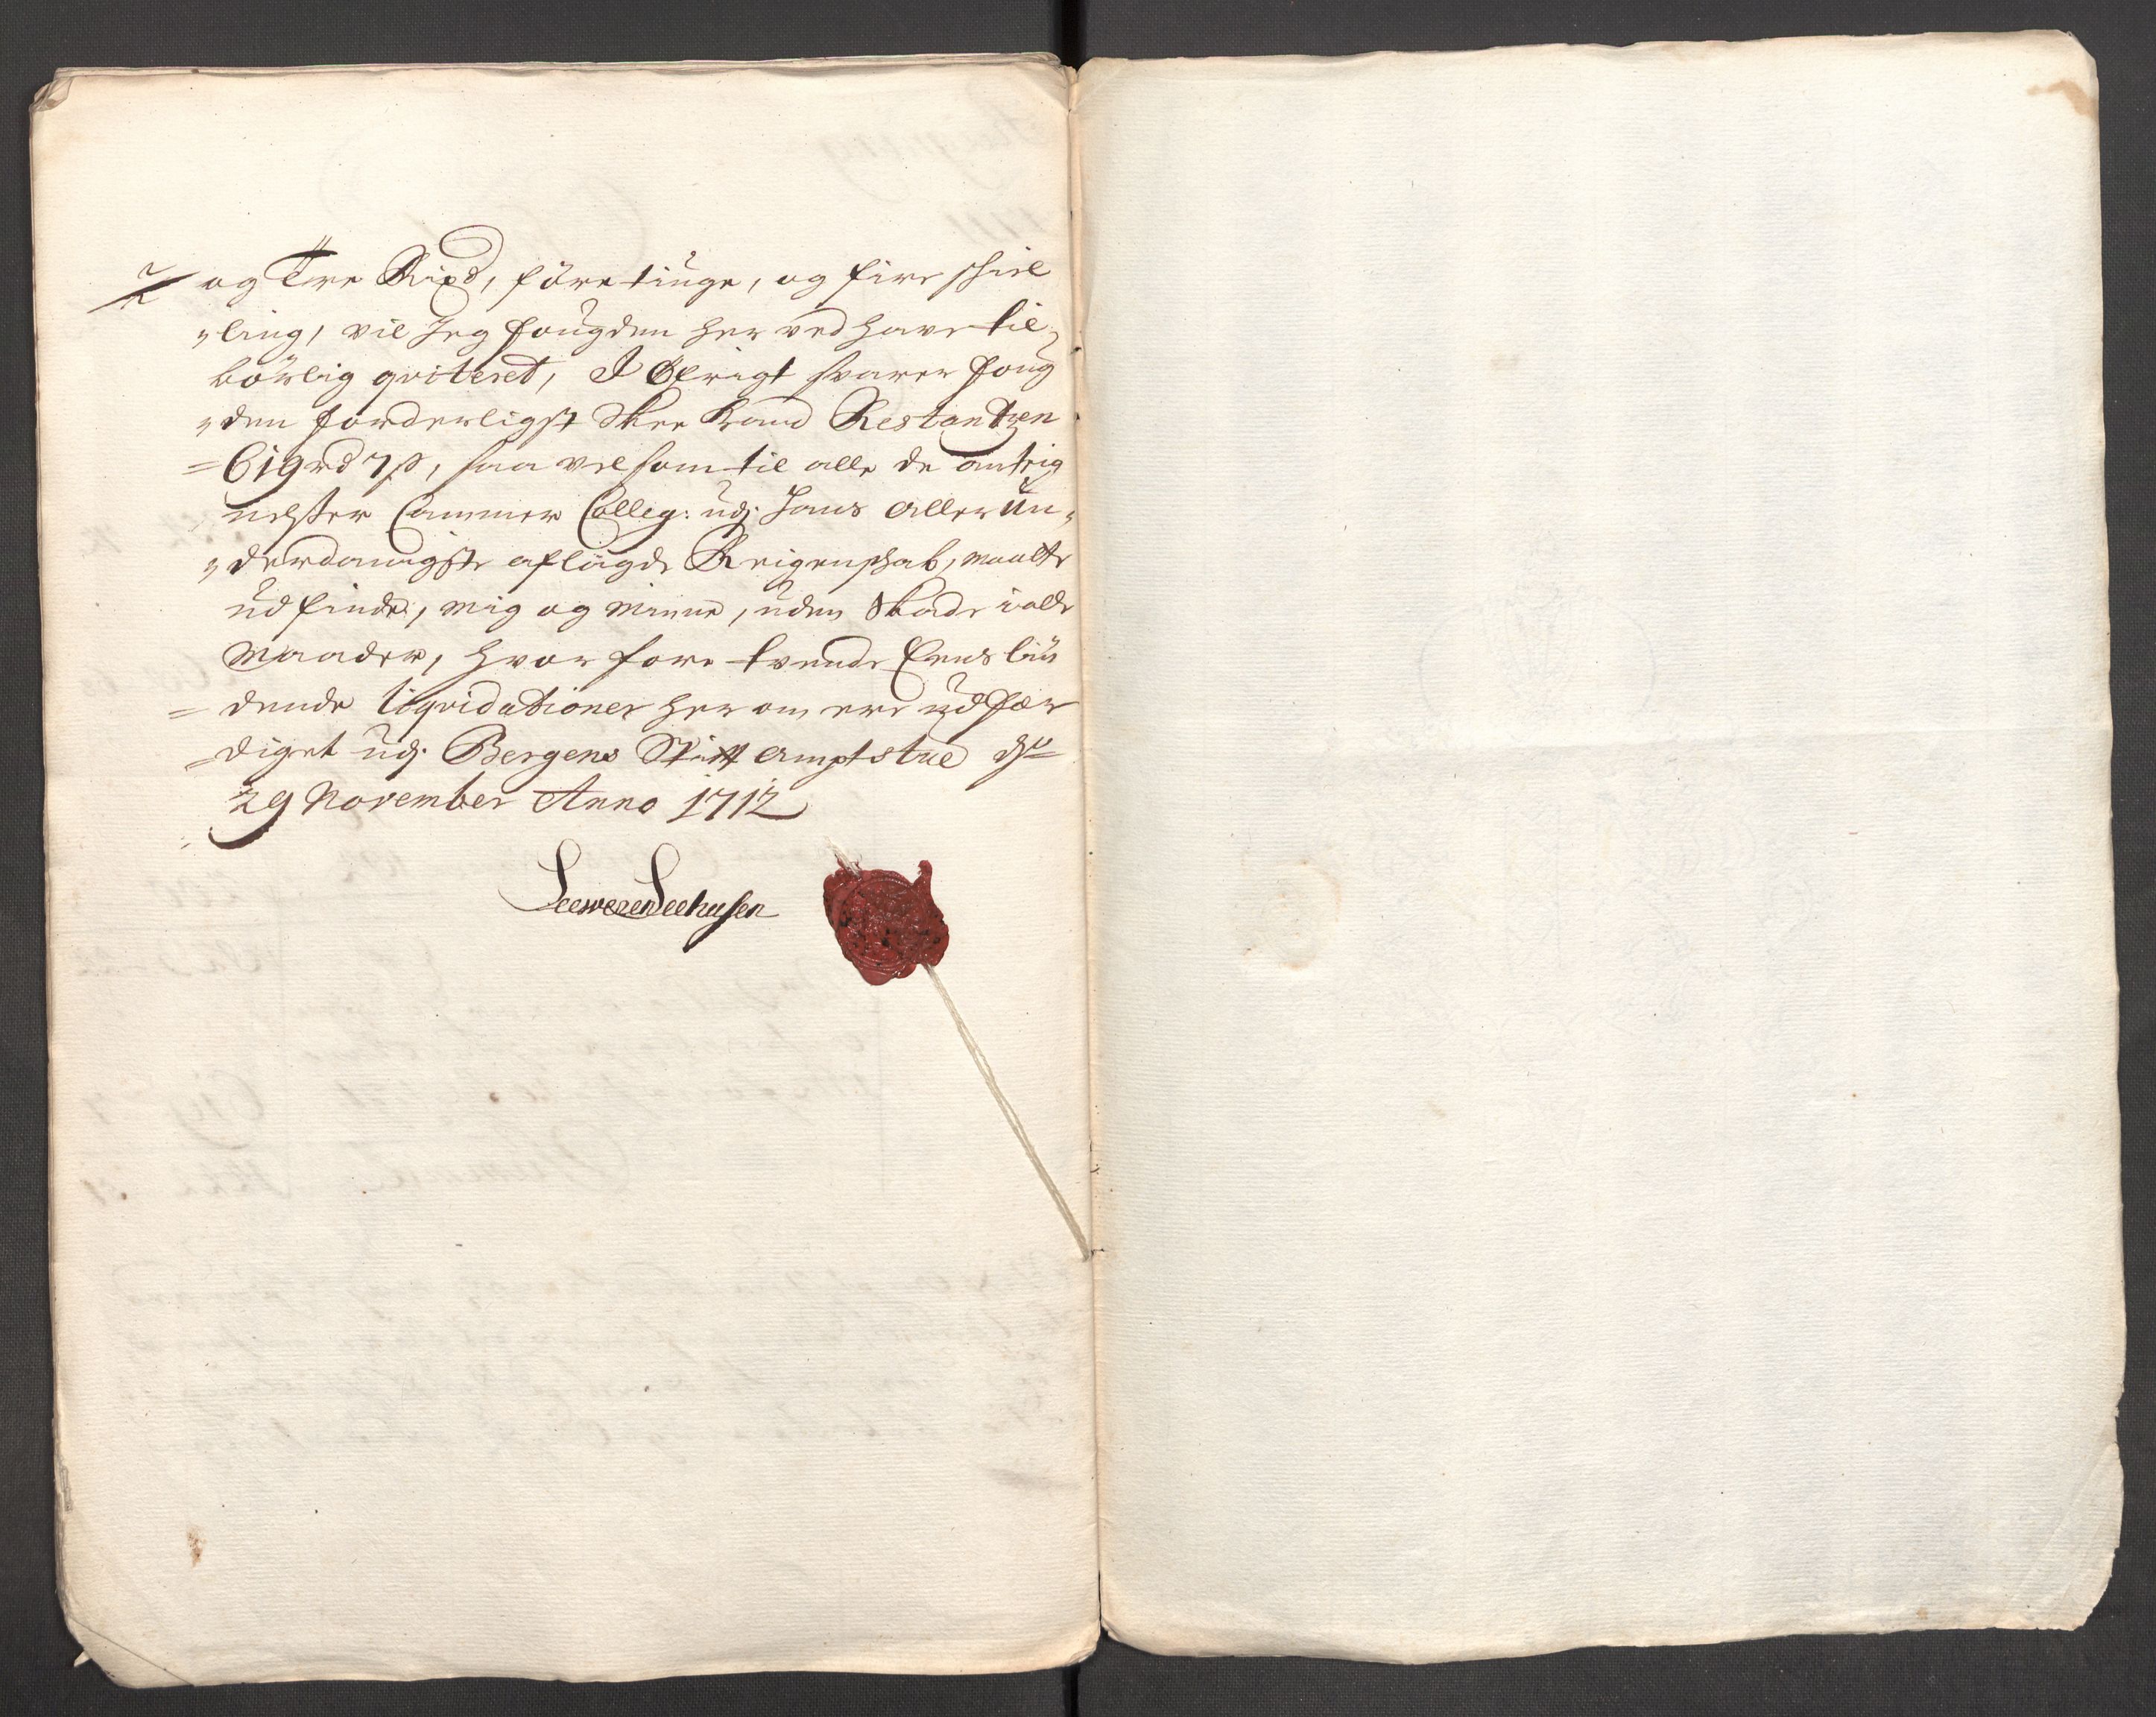 og Tre Rixd, före tiuge, og fire schil
"ling, vil Jeg fougden her ved have til
börlig qviteret, I Öfrigt svarer foug
"den forderligst Skee Kand Restantzen
=619 rd 7 s, saa vel som til alle de
Cammer Colleg: udj: hans allerun"
"derdanigste aflagde Reigenschab, maatte
udfinde, mig og minne, uden Skade i alle
Maader, hvor fore tvende Eens lÿu
=dende liqvidationer her om ere udfær
=diget udj Bergens Stift amptstue d
29 November Anno 1712
Seeweren Seehusen